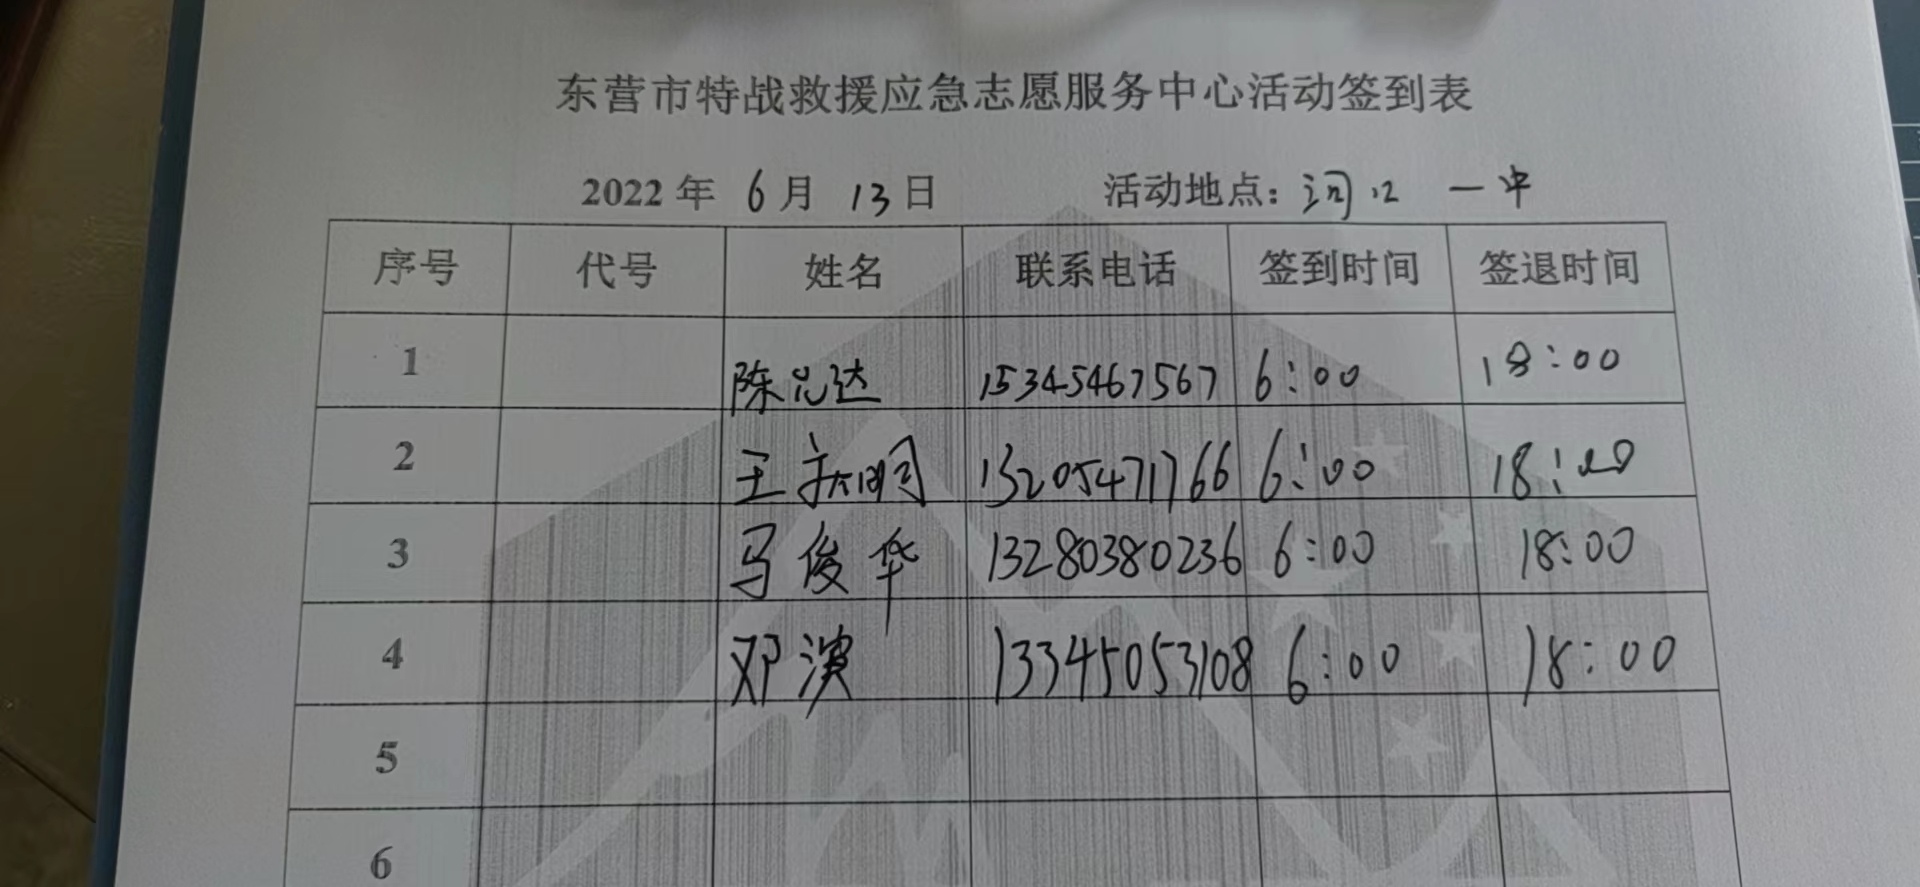 东营市特战救援应急志愿服务中心活动签到表
2022 年 6 月 13 日 活动地点：河口 一中
序号 代号 姓名 联系电话 签到时间 签退时间
1 陈 达 15345467567 6:00 18:00
2 王 明 13205471766 6:00 18:00
3 马俊华 13280380236 6:00 18:00
4 邓滨 13345053108 6:00 18:00
5
6